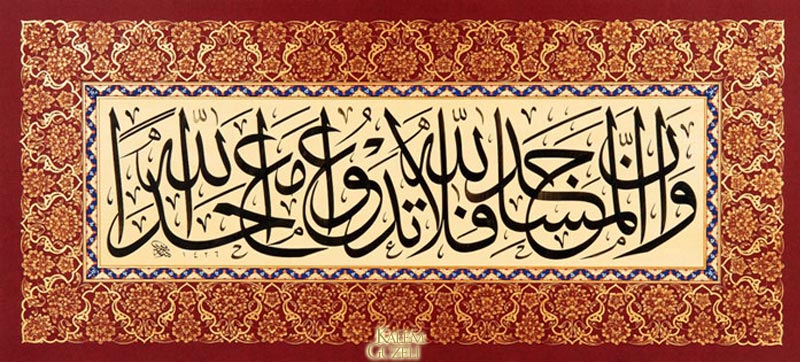 وَأَنَّ الْمَسَاجِدَ لِلَّهِ فَلَا تَدْعُوا مَعَ اللَّهِ أَحَدًا
١٤٢٦
KALEM GÜZELİ